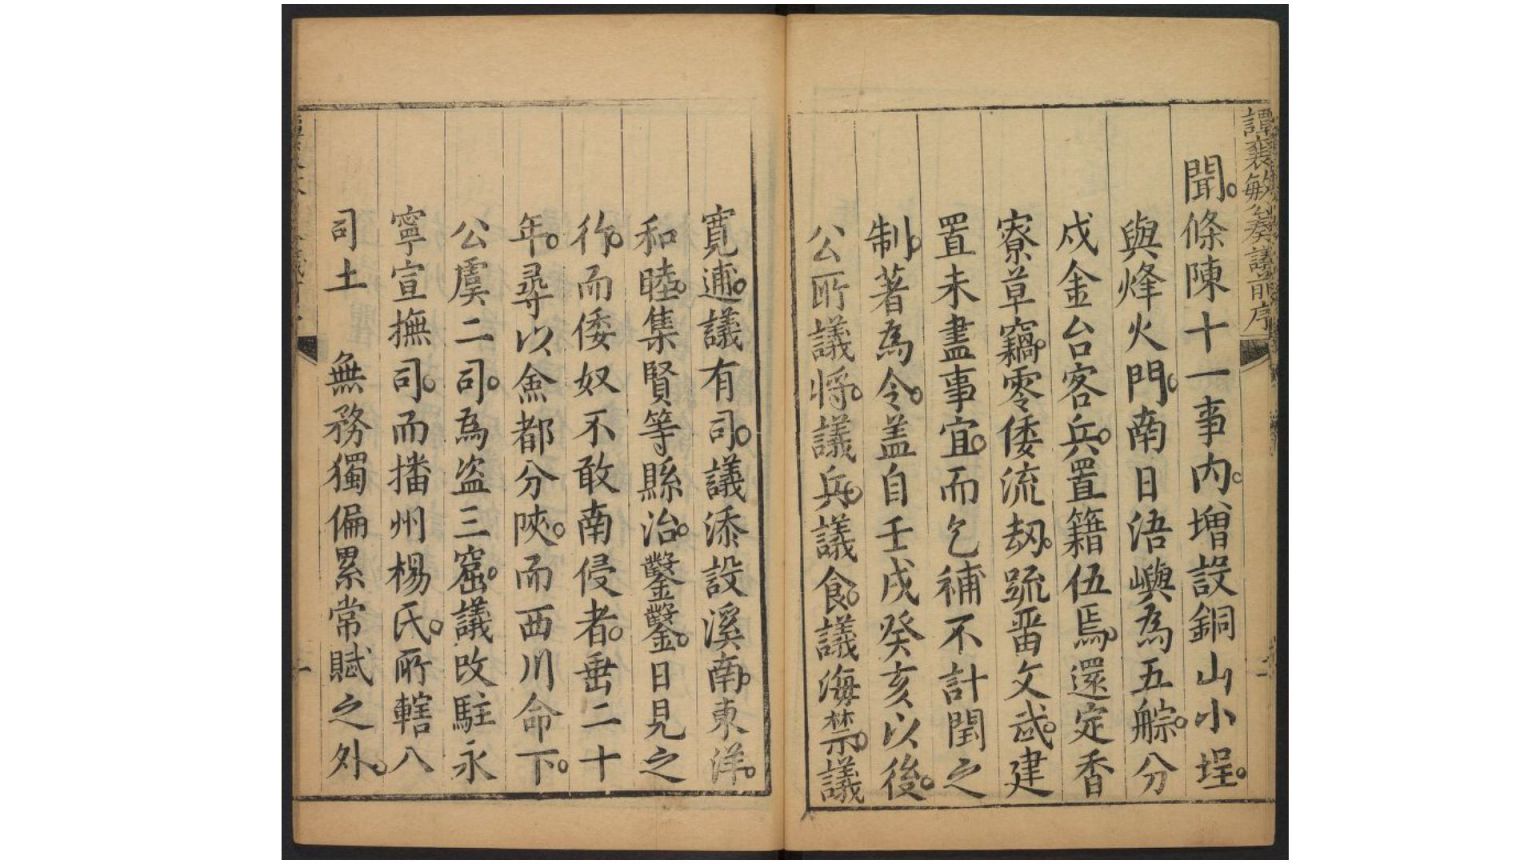 譚襄敏公奏議前序
聞條陳十一事内增設銅山小埕
與烽火門南日浯嶼為五䑸分
戍金台客兵置籍伍焉還定香
寮草竊零倭流刼䟽畱文武建
置未盡事宜而乞補不計閏之
制著為令盖自壬戌癸亥以後
公所議將議兵議食議海禁議
寛逋議有司議添設溪南東洋
和睦集賢等縣治鑿鑿日見之
行而倭奴不敢南侵者垂二十
年尋以僉都分陝而西川命下
公虞二司為盗三窟議改駐永
寧宣撫司而播州楊氏所轄八
司土 無務獨偏累常賦之外